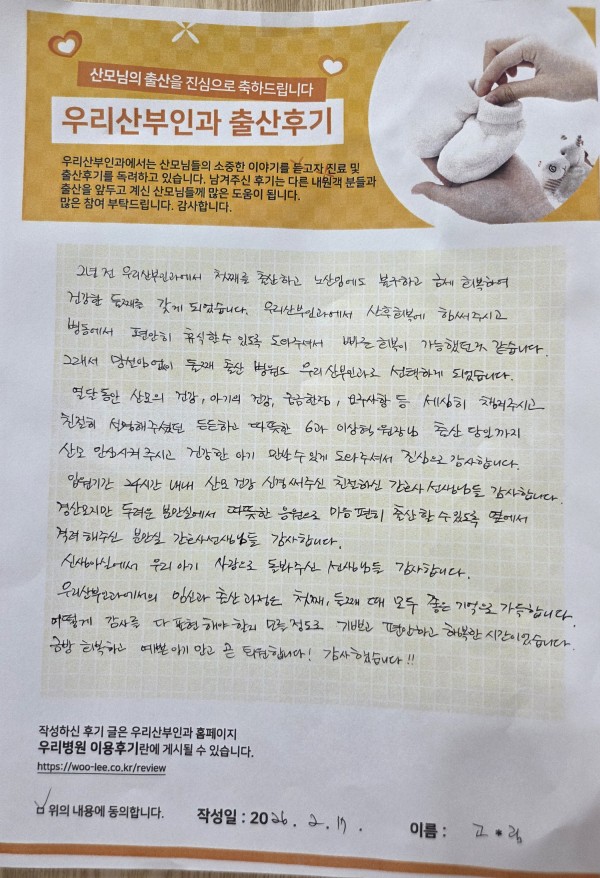 산모님의 출산을 진심으로 축하드립니다
우리산부인과 출산후기
우리산부인과에서는 산모님들의 소중한 이야기를 듣고자 진료 및
출산후기를 독려하고 있습니다. 남겨주신 후기는 다른 내원객 분들과
출산을 앞두고 계신 산모님들께 많은 도움이 됩니다.
많은 참여 부탁드립니다. 감사합니다.
2년 전 우리산부인과에서 첫째를 출산하고 노산임에도 불구하고 금세 회복하여
건강한 둘째를 갖게 되었습니다. 우리산부인과에서 산후회복에 힘써주시고
병동에서 편안히 휴식할수 있도록 도와주셔서 빠른 회복이 가능했던것 같습니다.
그래서 망설임없이 둘째 출산 병원도 우리산부인과로 선택하게 되었습니다.
열달동안 산모의 건강, 아기의 건강, 궁금한점, 요구사항 등 세심히 챙겨주시고
친절히 설명해주셨던 든든하고 따뜻한 6과 이상혁 원장님 출산 당일까지
산모 안심시켜 주시고 건강한 아기 만날 수 있게 도와주셔서 진심으로 감사합니다.
입원기간 24시간 내내 산모 건강 신경써주신 친절하신 간호사 선생님들 감사합니다.
경산모지만 두려운 분만실에서 따뜻한 응원으로 마음 편히 출산할 수 있도록 옆에서
격려해주신 분만실 간호사선생님들 감사합니다.
신생아실에서 우리 아기 사랑으로 돌봐주신 선생님들 감사합니다.
우리산부인과에서의 임신과 출산 과정은 첫째, 둘째 때 모두 좋은 기억으로 가득합니다.
어떻게 감사를 다 표현해야 할지 모를 정도로 기쁘고 편안하고 행복한 시간이었습니다.
금방 회복하고 예쁜 아기 안고 곧 퇴원합니다! 감사했습니다!!
작성하신 후기 글은 우리산부인과 홈페이지
우리병원 이용후기란에 게시될 수 있습니다.
https://woo-lee.co.kr/review
위의 내용에 동의합니다. 작성일 : 2026. 2. 17. 이름 : 고*림